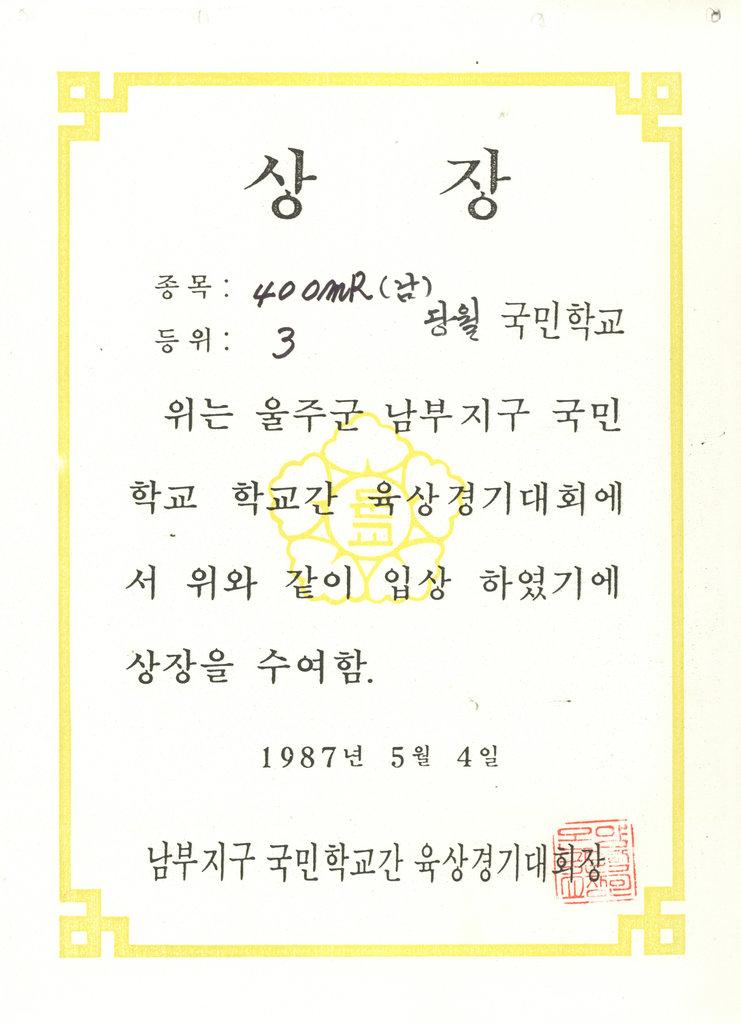 상 장
종목: 400mR(남)
당월 국민학교
등위: 3
위는 울주군 남부지구 국민
학교 학교간 육상경기대회에
서 위와 같이 입상 하였기에
상장을 수여함.
1987년 5월 4일
남부지구 국민학교간 육상경기대회장